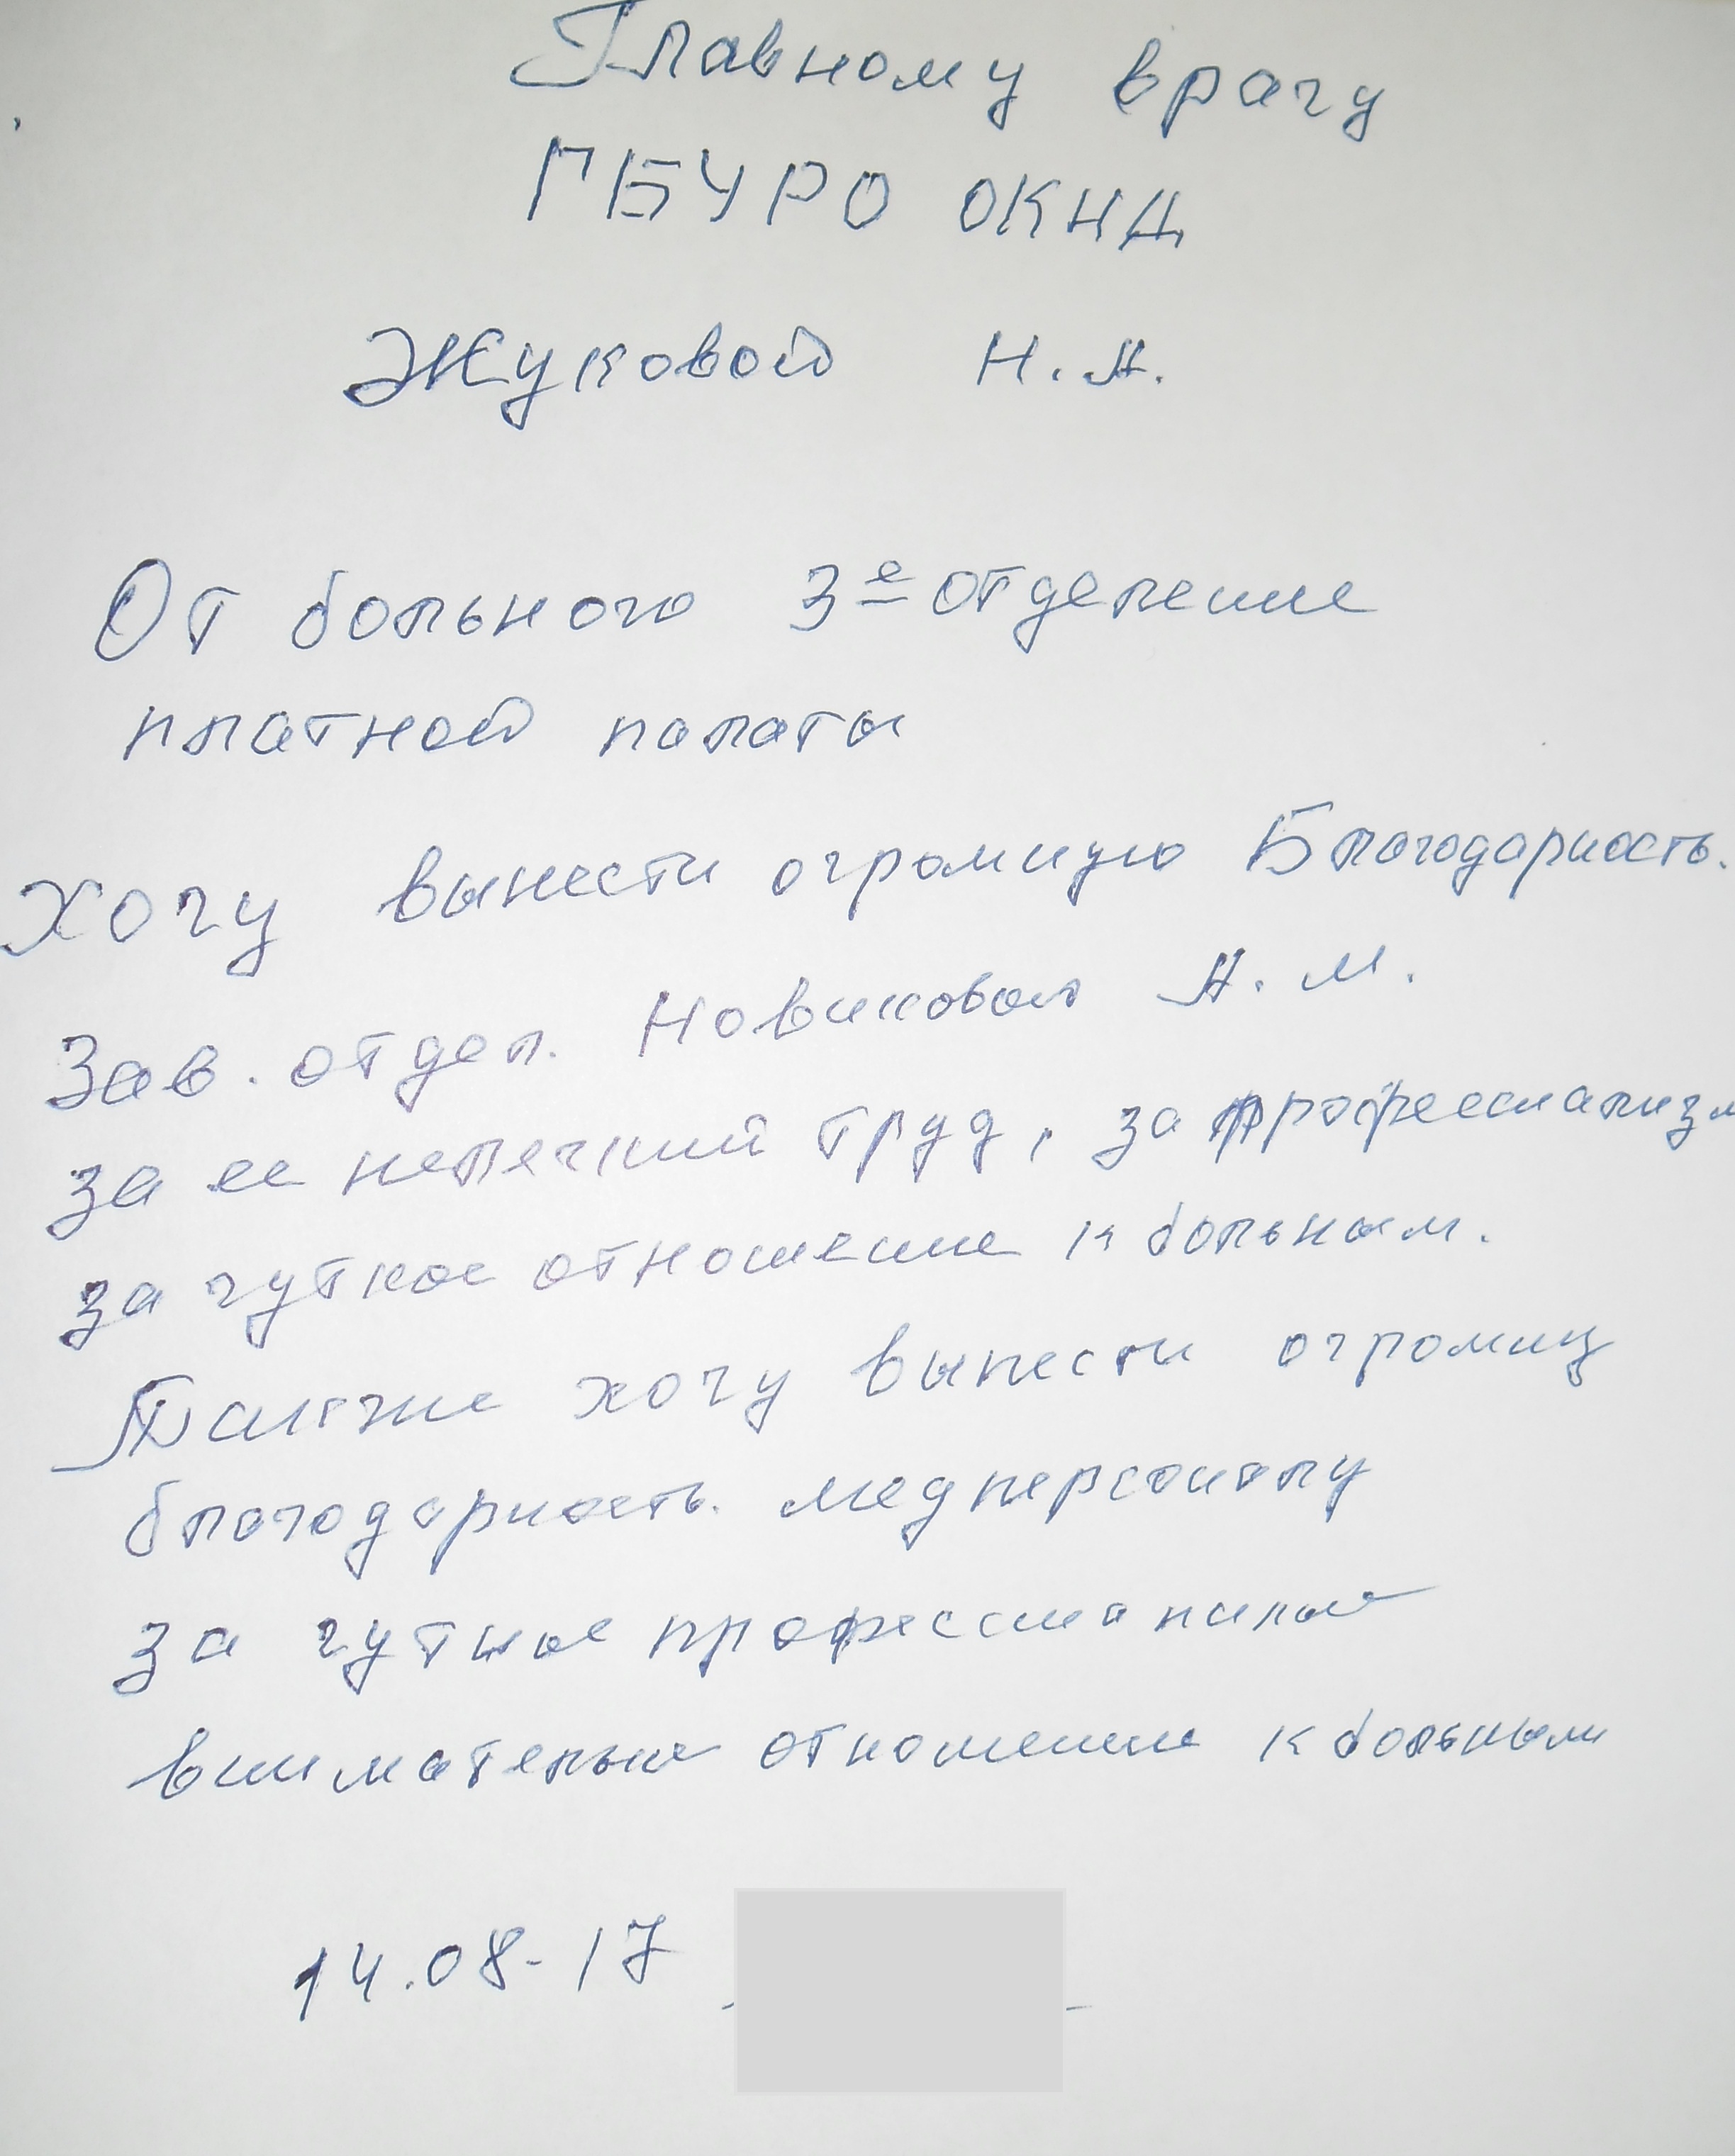 Главному врачу
ГБУРО ОКНД
Жуковой Н.А.
От больного 3е отделение
платной палаты
Хочу вынести огромную Благодарность.
Зав. отдел. Новиковой А.М.
за ее нелегкий труд, за профессианализм
за чуткое отношение к больным.
Также хочу вынести огромну
благодарность медперсоналу
за чуткое
внимательное отношение к больным
14.08-17